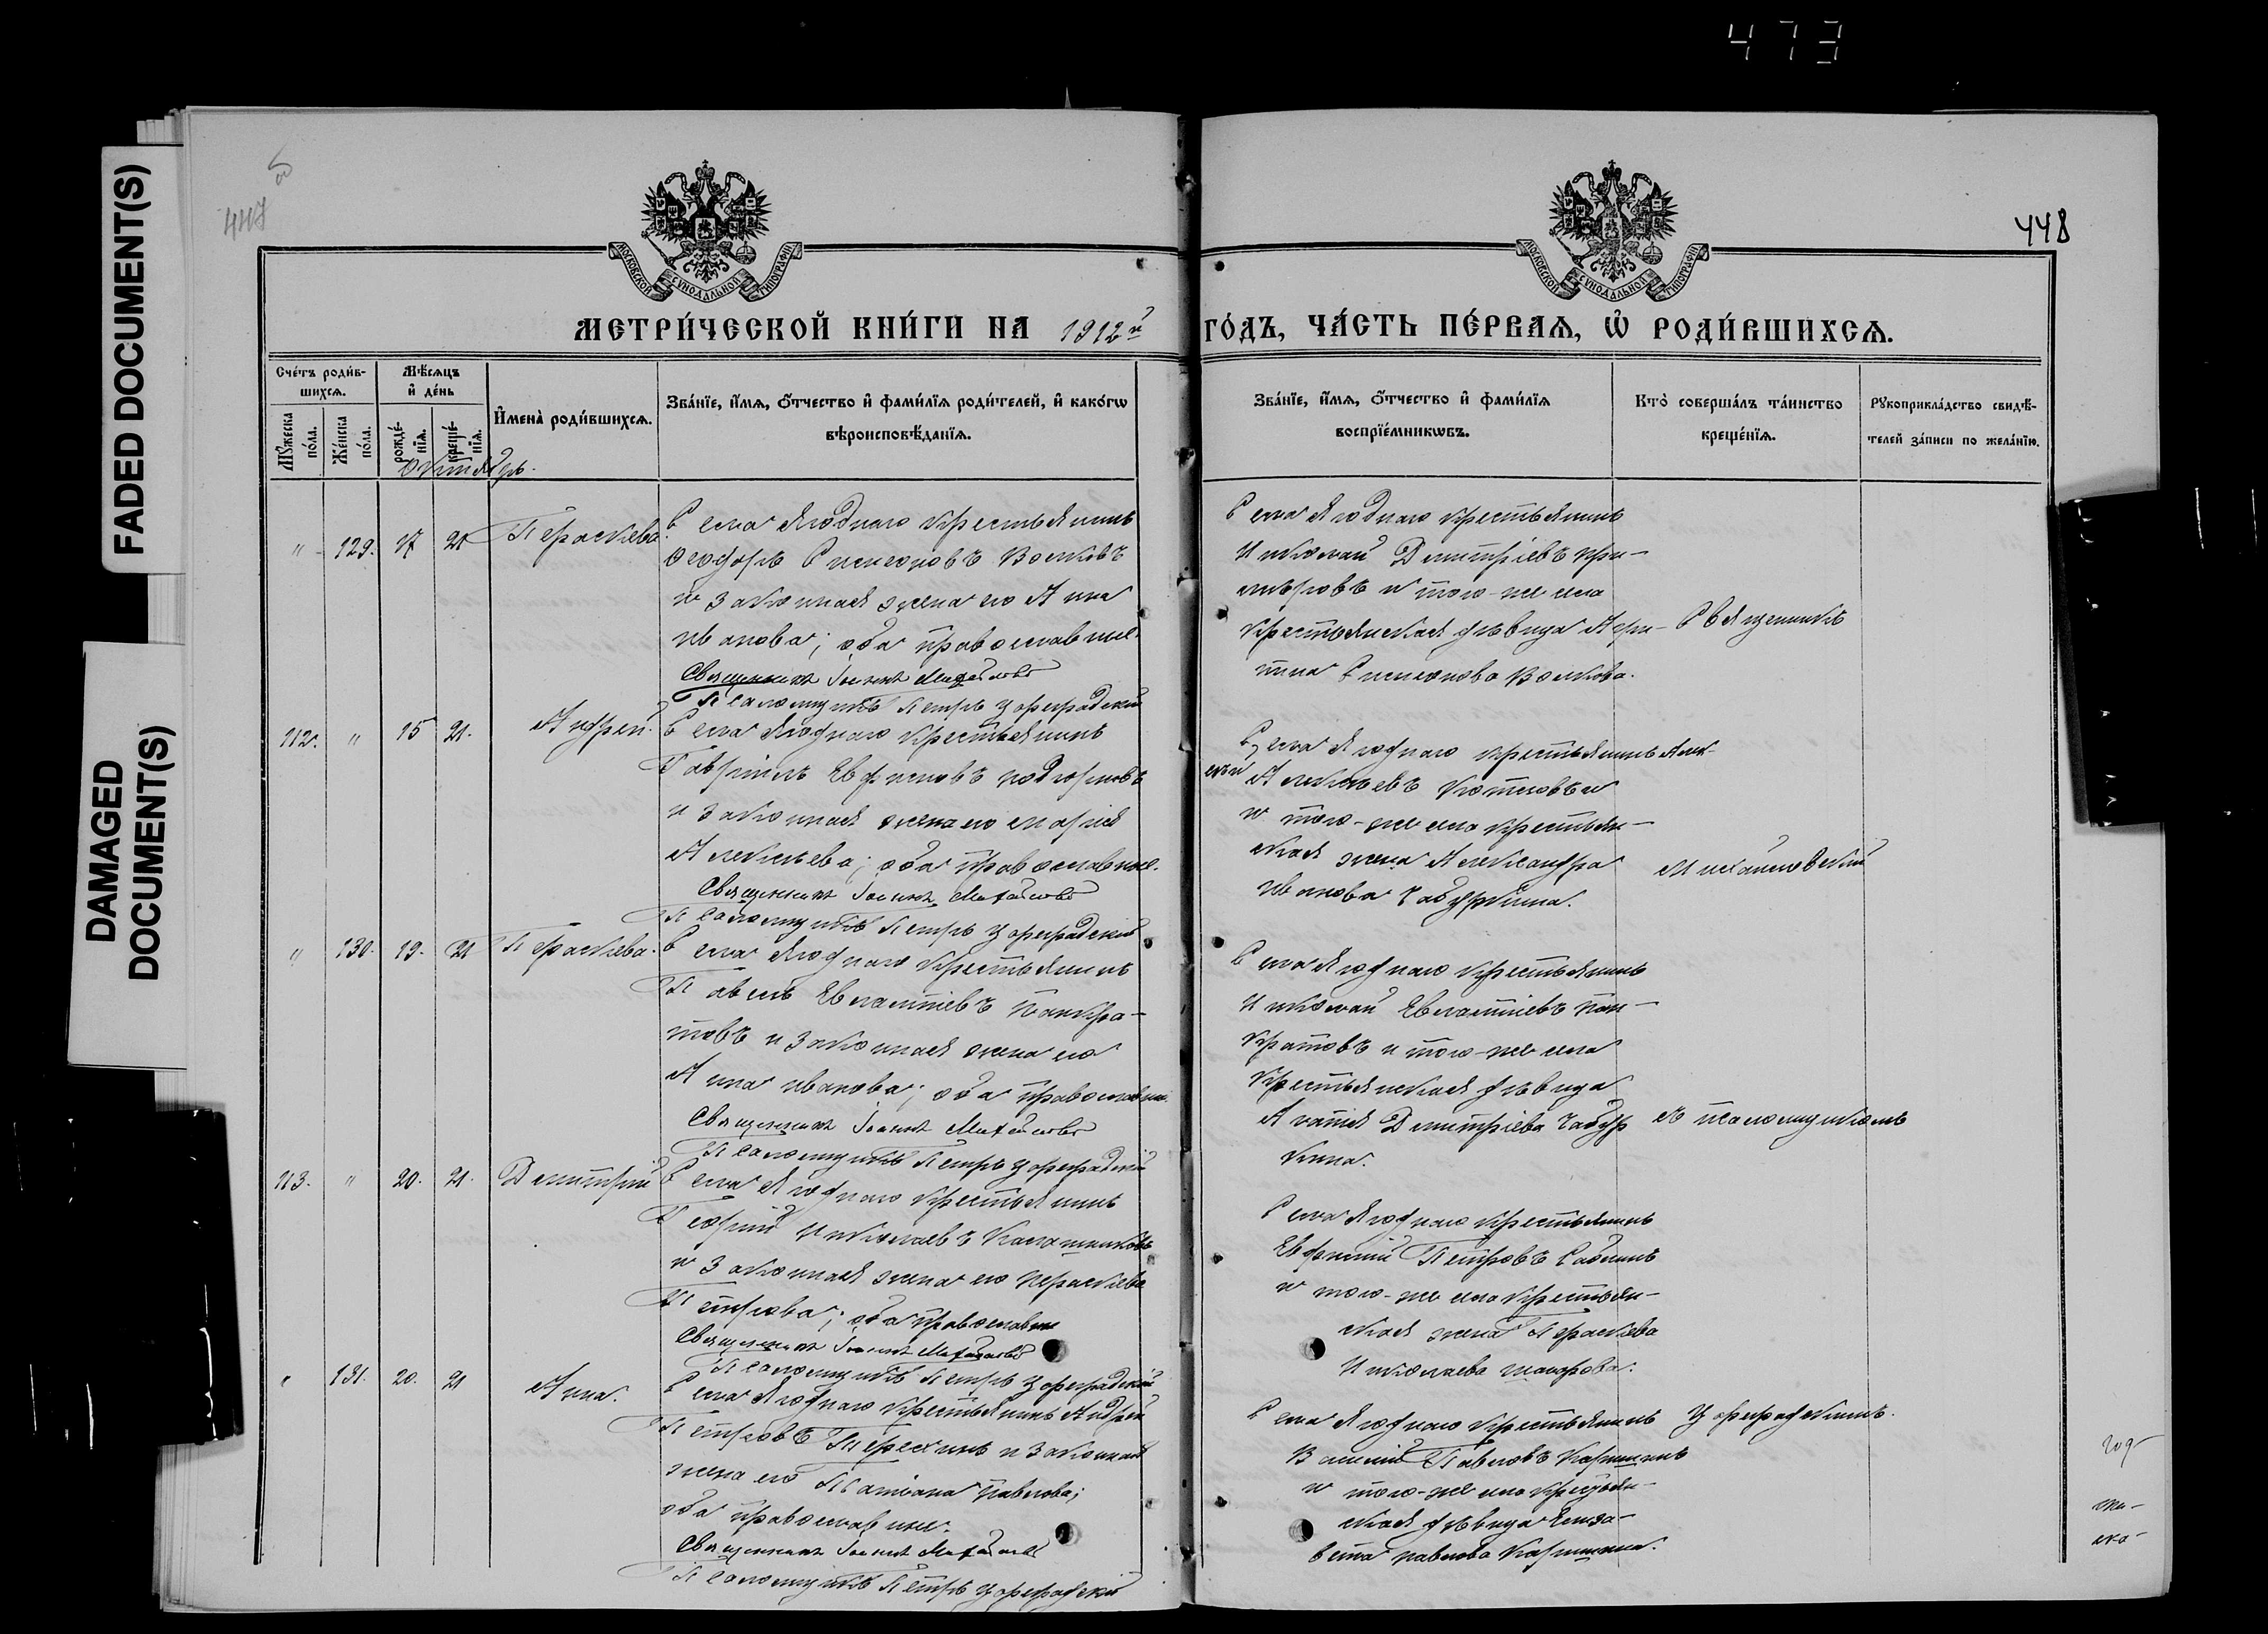 473
FADED DOCUMENT(S)
DAMAGED
DOCUMENT(S)
448
МОСКОВСКОЙ СѴНОДАЛЬНОЙ ТИПОГРАФІИ
МОСКОВСКОЙ СѴНОДАЛЬНОЙ ТИПОГРАФІИ
МЕТРИ́ЧЕСКОЙ КНИ́ГИ НА 1912й ГО́ДЪ, ЧА́СТЬ ПЕ́РВАѦ, Ѡ҆ РОДИ́ВШИХСѦ.
Сче́тъ роди́в-
шихсѧ.
Мꙋ́жеска
по́ла.
Же́нска
по́ла.
Мѣ́сѧцъ
и҆ де́нь
рожде́-
нїѧ.
креще́-
нїѧ.
И҆мена̀ роди́вшихсѧ.
Зва́нїе, и҆́мѧ, ѻ҆́тчество и҆ фами́лїѧ роди́телей, и҆ како́гѡ
вѣроисповѣ́данїѧ.
Зва́нїе, и҆́мѧ, ѻ҆́тчество и҆ фами́лїѧ
воспрїе́мникѡвъ.
Кто̀ соверша́лъ та́инство
креще́нїѧ.
Рꙋкоприкла́дство свидѣ́-
телей за́писи по жела́нїю.
Октябрь.
" 129. 17 21 Параскева.
Села Ягоднаго крестьянинъ
Ѳеодоръ Симеоновъ Волковъ
и законная жена его Анна
Иванова; оба православные
Священникъ Іоаннъ Михайловс
Псаломщикъ Петръ Цареградскій
Села Ягоднаго крестьянинъ
Николай Димитріевъ
и того-же села
крестьянская дѣвица
Симеонова Волкова.
Священникъ
112. " 15 21. Андрей.
Села Ягоднаго крестьянинъ
Гавріилъ Евфимовъ
и законная жена его Марія
Алексѣева; оба православные.
Священникъ Іоаннъ Михайловс
Псаломщикъ Петръ Цареградскій
Села Ягоднаго крестьянинъ Алек-
сѣй Алексѣевъ
и того-же села крестьян-
ская жена Александра
Иванова
Михайловскій
" 130. 19. 21 Параскева.
Села Ягоднаго крестьянинъ
Павелъ Евлампіевъ Панкра-
товъ и законная жена его
Анна Иванова; оба православные.
Священникъ Іоаннъ Михайловс
Псаломщикъ Петръ Цареградскій
Села Ягоднаго крестьянинъ
Николай Евлампіевъ Пан-
кратовъ и того-же села
крестьянская дѣвица
Димитріева
кина.
съ псаломщикомъ
113. " 20. 21. Димитрій
Села Ягоднаго крестьянинъ
Георгій Николаевъ Калашниковъ
и законная жена его Параскева
Петрова; оба православные
Священникъ Іоаннъ Михайловс
Псаломщикъ Петръ Цареградскій
Села Ягоднаго крестьянинъ
Евфимій Петровъ
и того-же села крестьян-
ская жена Параскева
Николаева
" 131. 20. 21 Анна.
Села Ягоднаго крестьянинъ Андрей
Петровъ и законная
жена его Татіана Павлова;
оба православные.
Священникъ Іоаннъ Михайловс
Псаломщикъ Петръ Цареградскій
Села Ягоднаго крестьянинъ
Василій Павловъ
и того-же села крестьян-
ская дѣвица Елиза-
вета Павлова
Цареградскимъ.